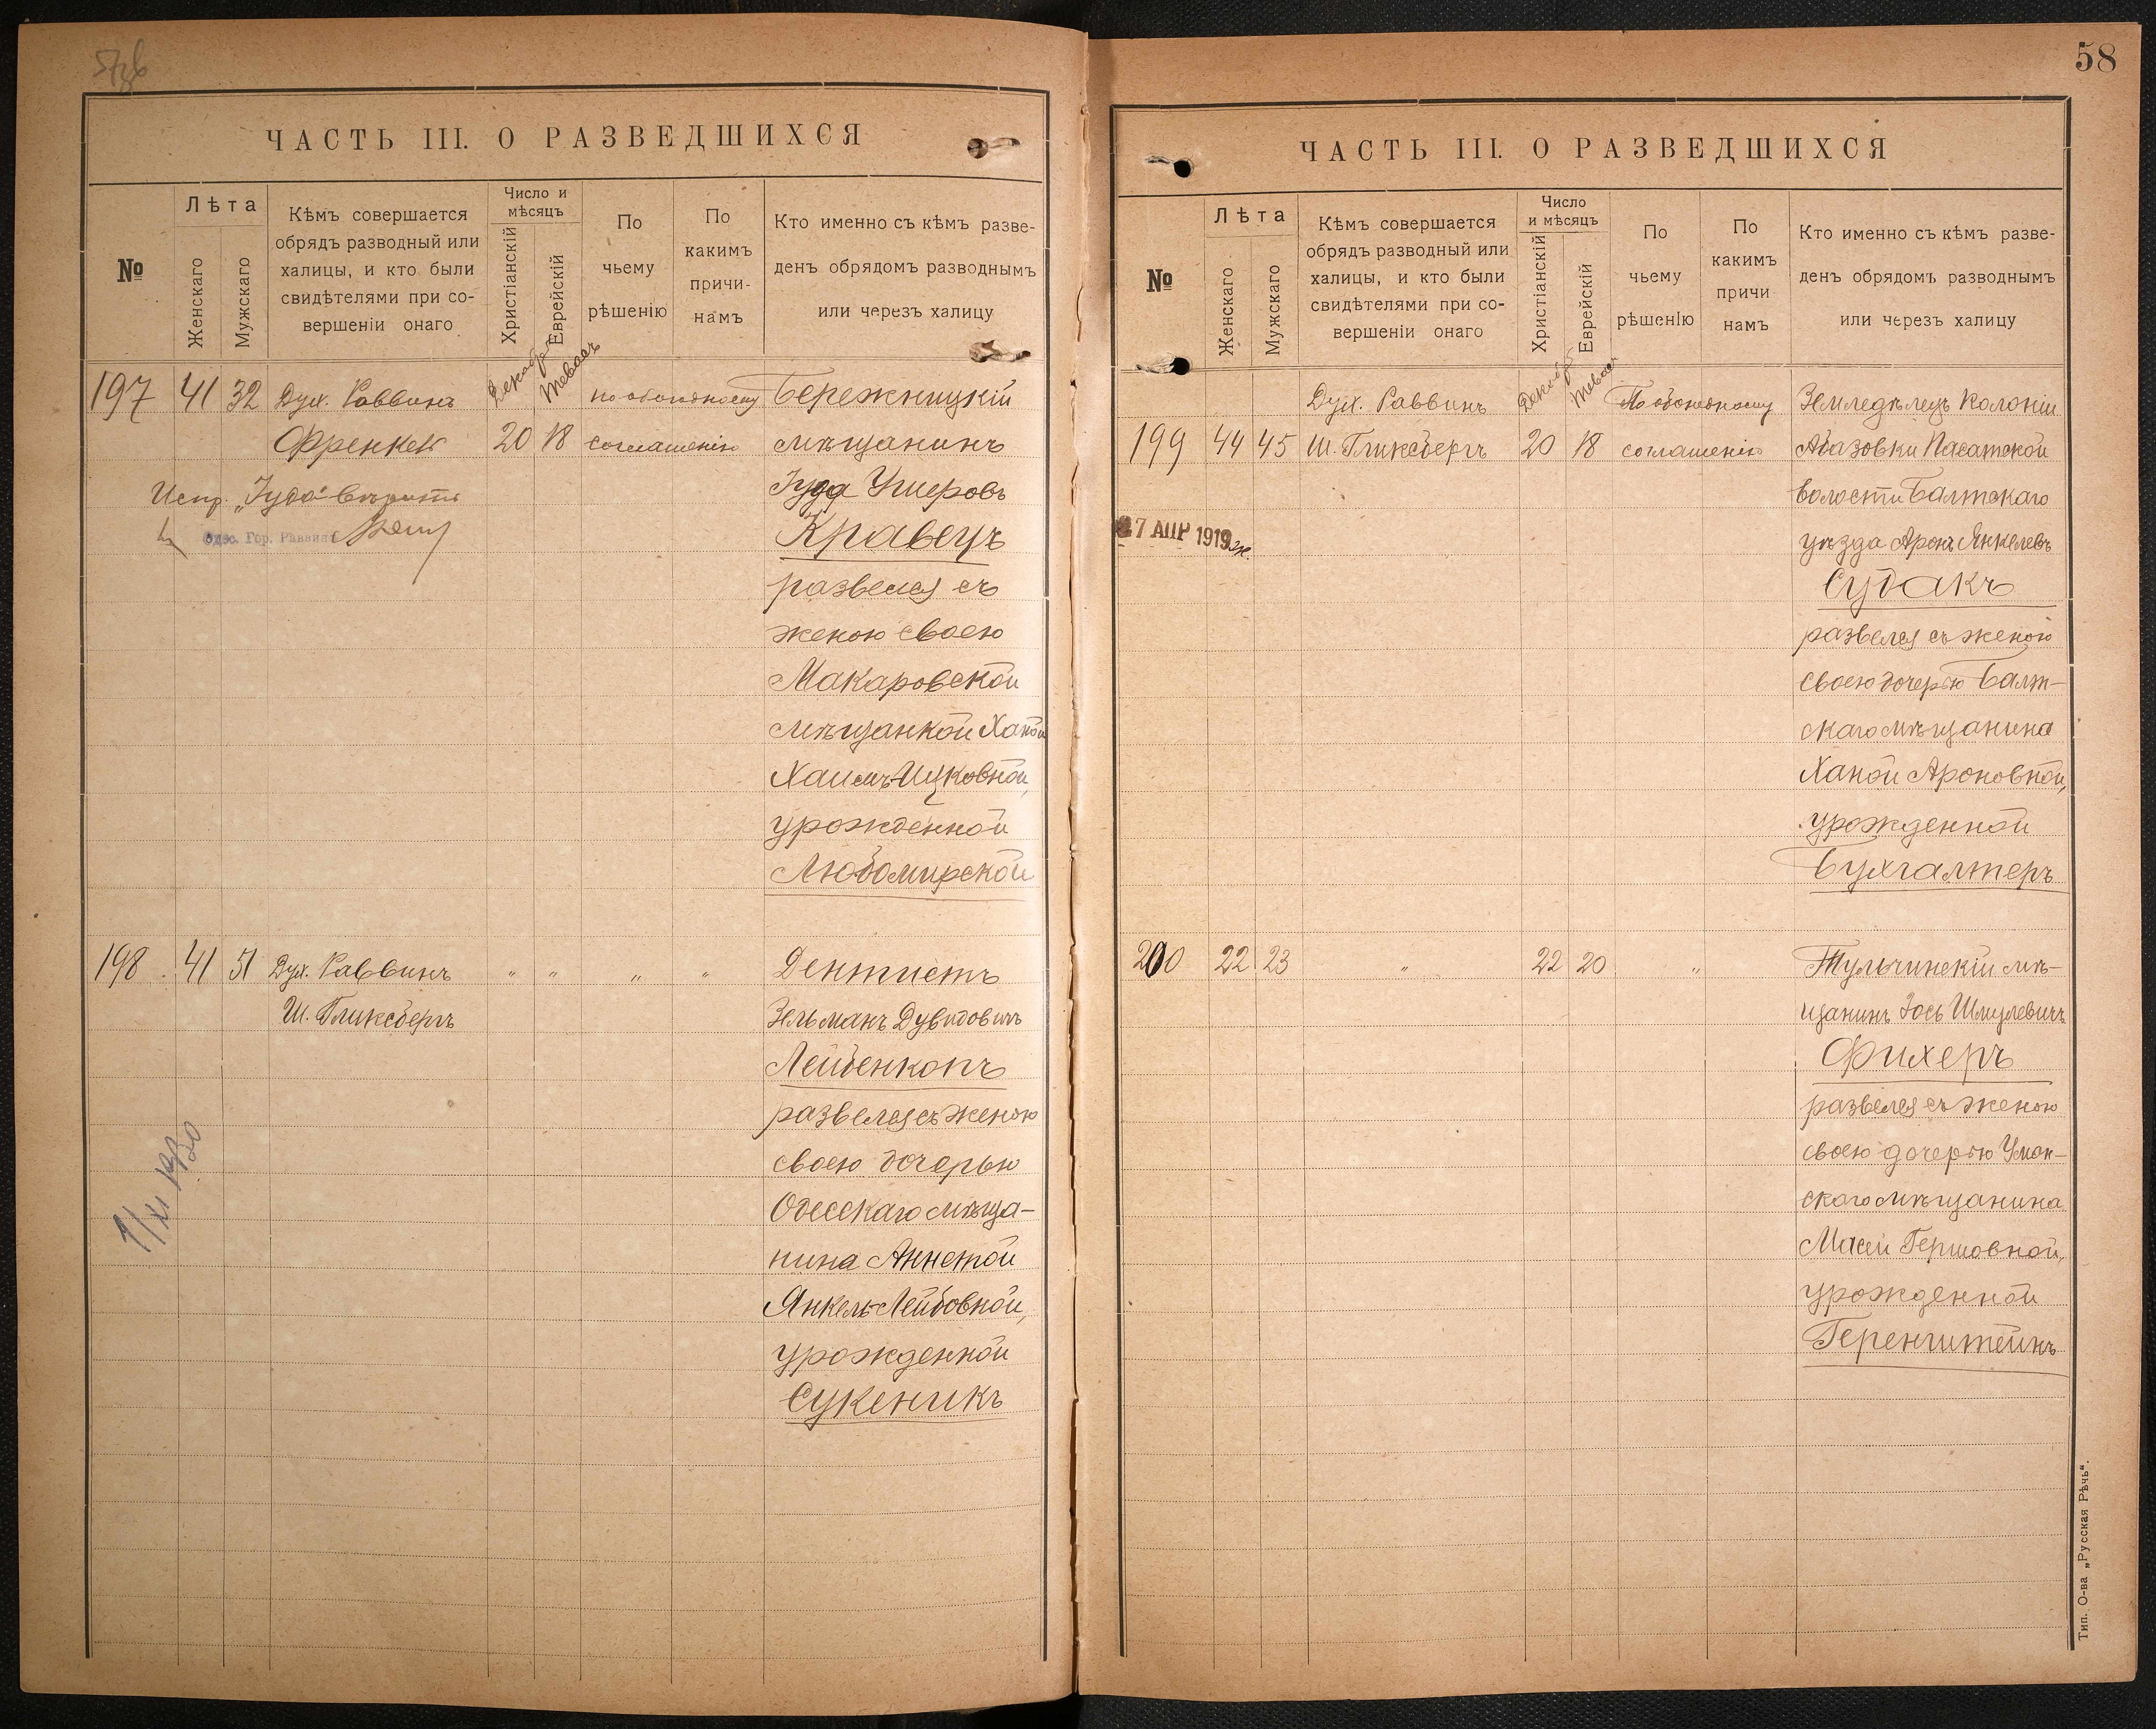 58
ЧАСТЬ III. О РАЗВЕДШИХСЯ
№
Лѣта
Женскаго
Мужскаго
Кѣмъ совершается
обрядъ разводный или
халицы, и кто были
свидѣтелями при со-
вершеніи онаго
Число и
мѣсяцъ
Христіанскій
Еврейскій
По
чьему
рѣшенію
По
какимъ
причи-
намъ
Кто именно съ кѣмъ разве-
денъ обрядомъ разводнымъ
или черезъ халицу
197 41 32 Дух. Раввинъ Декабр. Тевась по обоюдному Бережницкій
Френкель 20 18 соглашенію мѣщанинъ
Испр. „Іуда" вѣрить Іуда Ушеровъ
Одес. Гор. Раввинъ Кравецъ
развелся съ
женою своею
Макаровской
мѣщанкой Ханой
Хаимъ-Ицковной,
урожденной
Любомирской
198 41 51 Дух. Раввинъ " " " " Дентистъ
Ш. Гликсбергъ Зельманъ Дувидовичъ
Лейбенкопъ
развелся съ женою
своею дочерью
Одесскаго мѣща-
нина Аннетой
Янкель-Лейбовной,
урожденной
Сукеникъ
ЧАСТЬ III. О РАЗВЕДШИХСЯ
№
Лѣта
Женскаго
Мужскаго
Кѣмъ совершается
обрядъ разводный или
халицы, и кто были
свидѣтелями при со-
вершеніи онаго
Число
и мѣсяцъ
Христіанскій
Еврейскій
По
чьему
рѣшенію
По
какимъ
причи
намъ
Кто именно съ кѣмъ разве-
денъ обрядомъ разводнымъ
или черезъ халицу
Дух. Раввинъ Декабр. Тевась По обоюдному Земледѣлецъ колоніи
199 44 45 Ш. Гликсбергъ 20 18 соглашенію Абазовки Пасатской
волости Балтскаго
7 АПР 1919 уѣзда Аронъ Янкелевъ
Судакъ
развелся съ женою
своею дочерью Балт-
скаго мѣщанина
Ханой Ароновной,
урожденной
Бухгалтеръ
200 22 23 " 22 20 " Тульчинскій мѣ-
щанинъ Іось Шмулевичъ
Фихеръ
развелся съ женою
своею дочерью Уман-
скаго мѣщанина
Масей Гершовной,
урожденной
Геренштейнъ
Тип. О-ва „Русская Рѣчь".